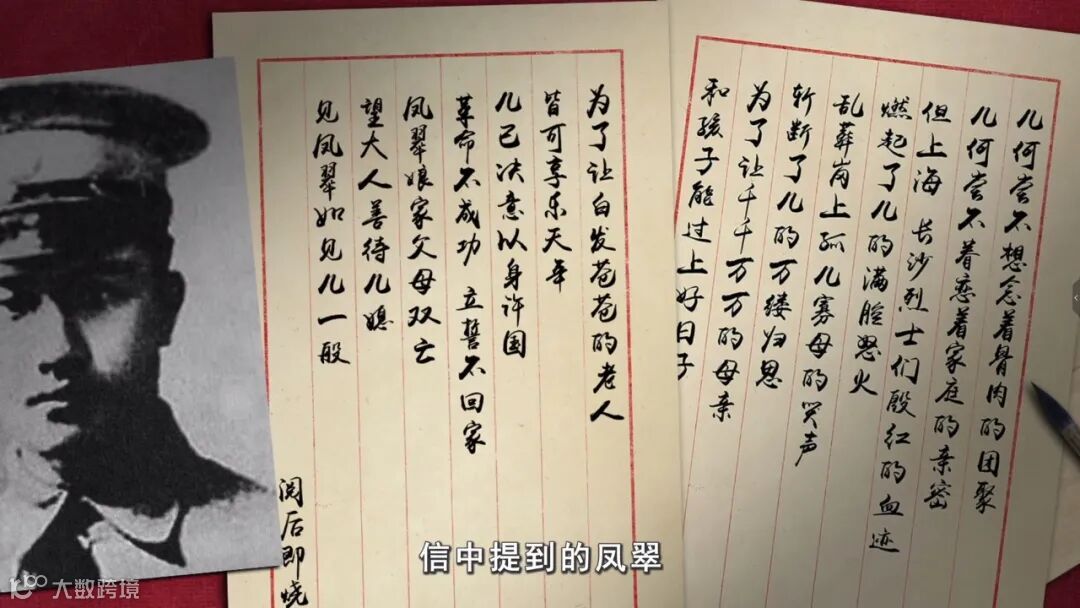 儿何尝不想念着骨肉的团聚
儿何尝不眷恋着家庭的亲密
但上海 长沙烈士们殷红的血迹
燃起了儿的满脸怒火
乱葬岗上孤儿寡母的哭声
斩断了儿的万缕归思
为了让千千万万的母亲
和孩子能过上好日子
为了让白发苍苍的老人
皆可享乐天年
儿已决意以身许国
革命不成功 立誓不回家
凤翠娘家父母双亡
望大人善待儿媳
见凤翠如见儿一般
阅后即烧
信中提到的凤翠
大数跨境